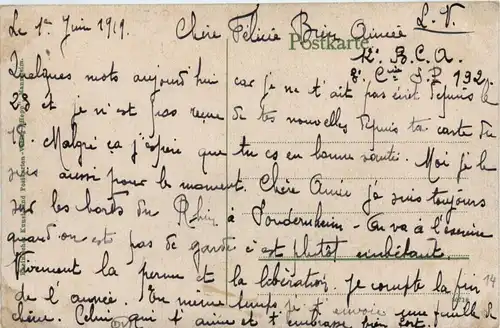 Le 1er Juin 1919. Chère Félicie Bien Aimée L. V.
Postkarte
R. B.C.A.
8. Cie S.P. 192.
Quelques mots aujourd'hui car je ne t'ait pas écrit depuis le
28 et je n'est pas reçue de tes nouvelles depuis ta carte du
Malgré ça j'espère que tu es en bonne santé. Moi je le
suis aussi pour le moment. Chère Aimée je suis toujours
sur les bords du Rhin à - On va à l'exercice
quand on est pas de garde c'est plutôt embêtant.
Vivement la perme et la libération. Je compte la fin
de l'année. En même temps je t'envoie une feuille de
chêne. Celui qui t'aime et t'embrasse bien fort.
14